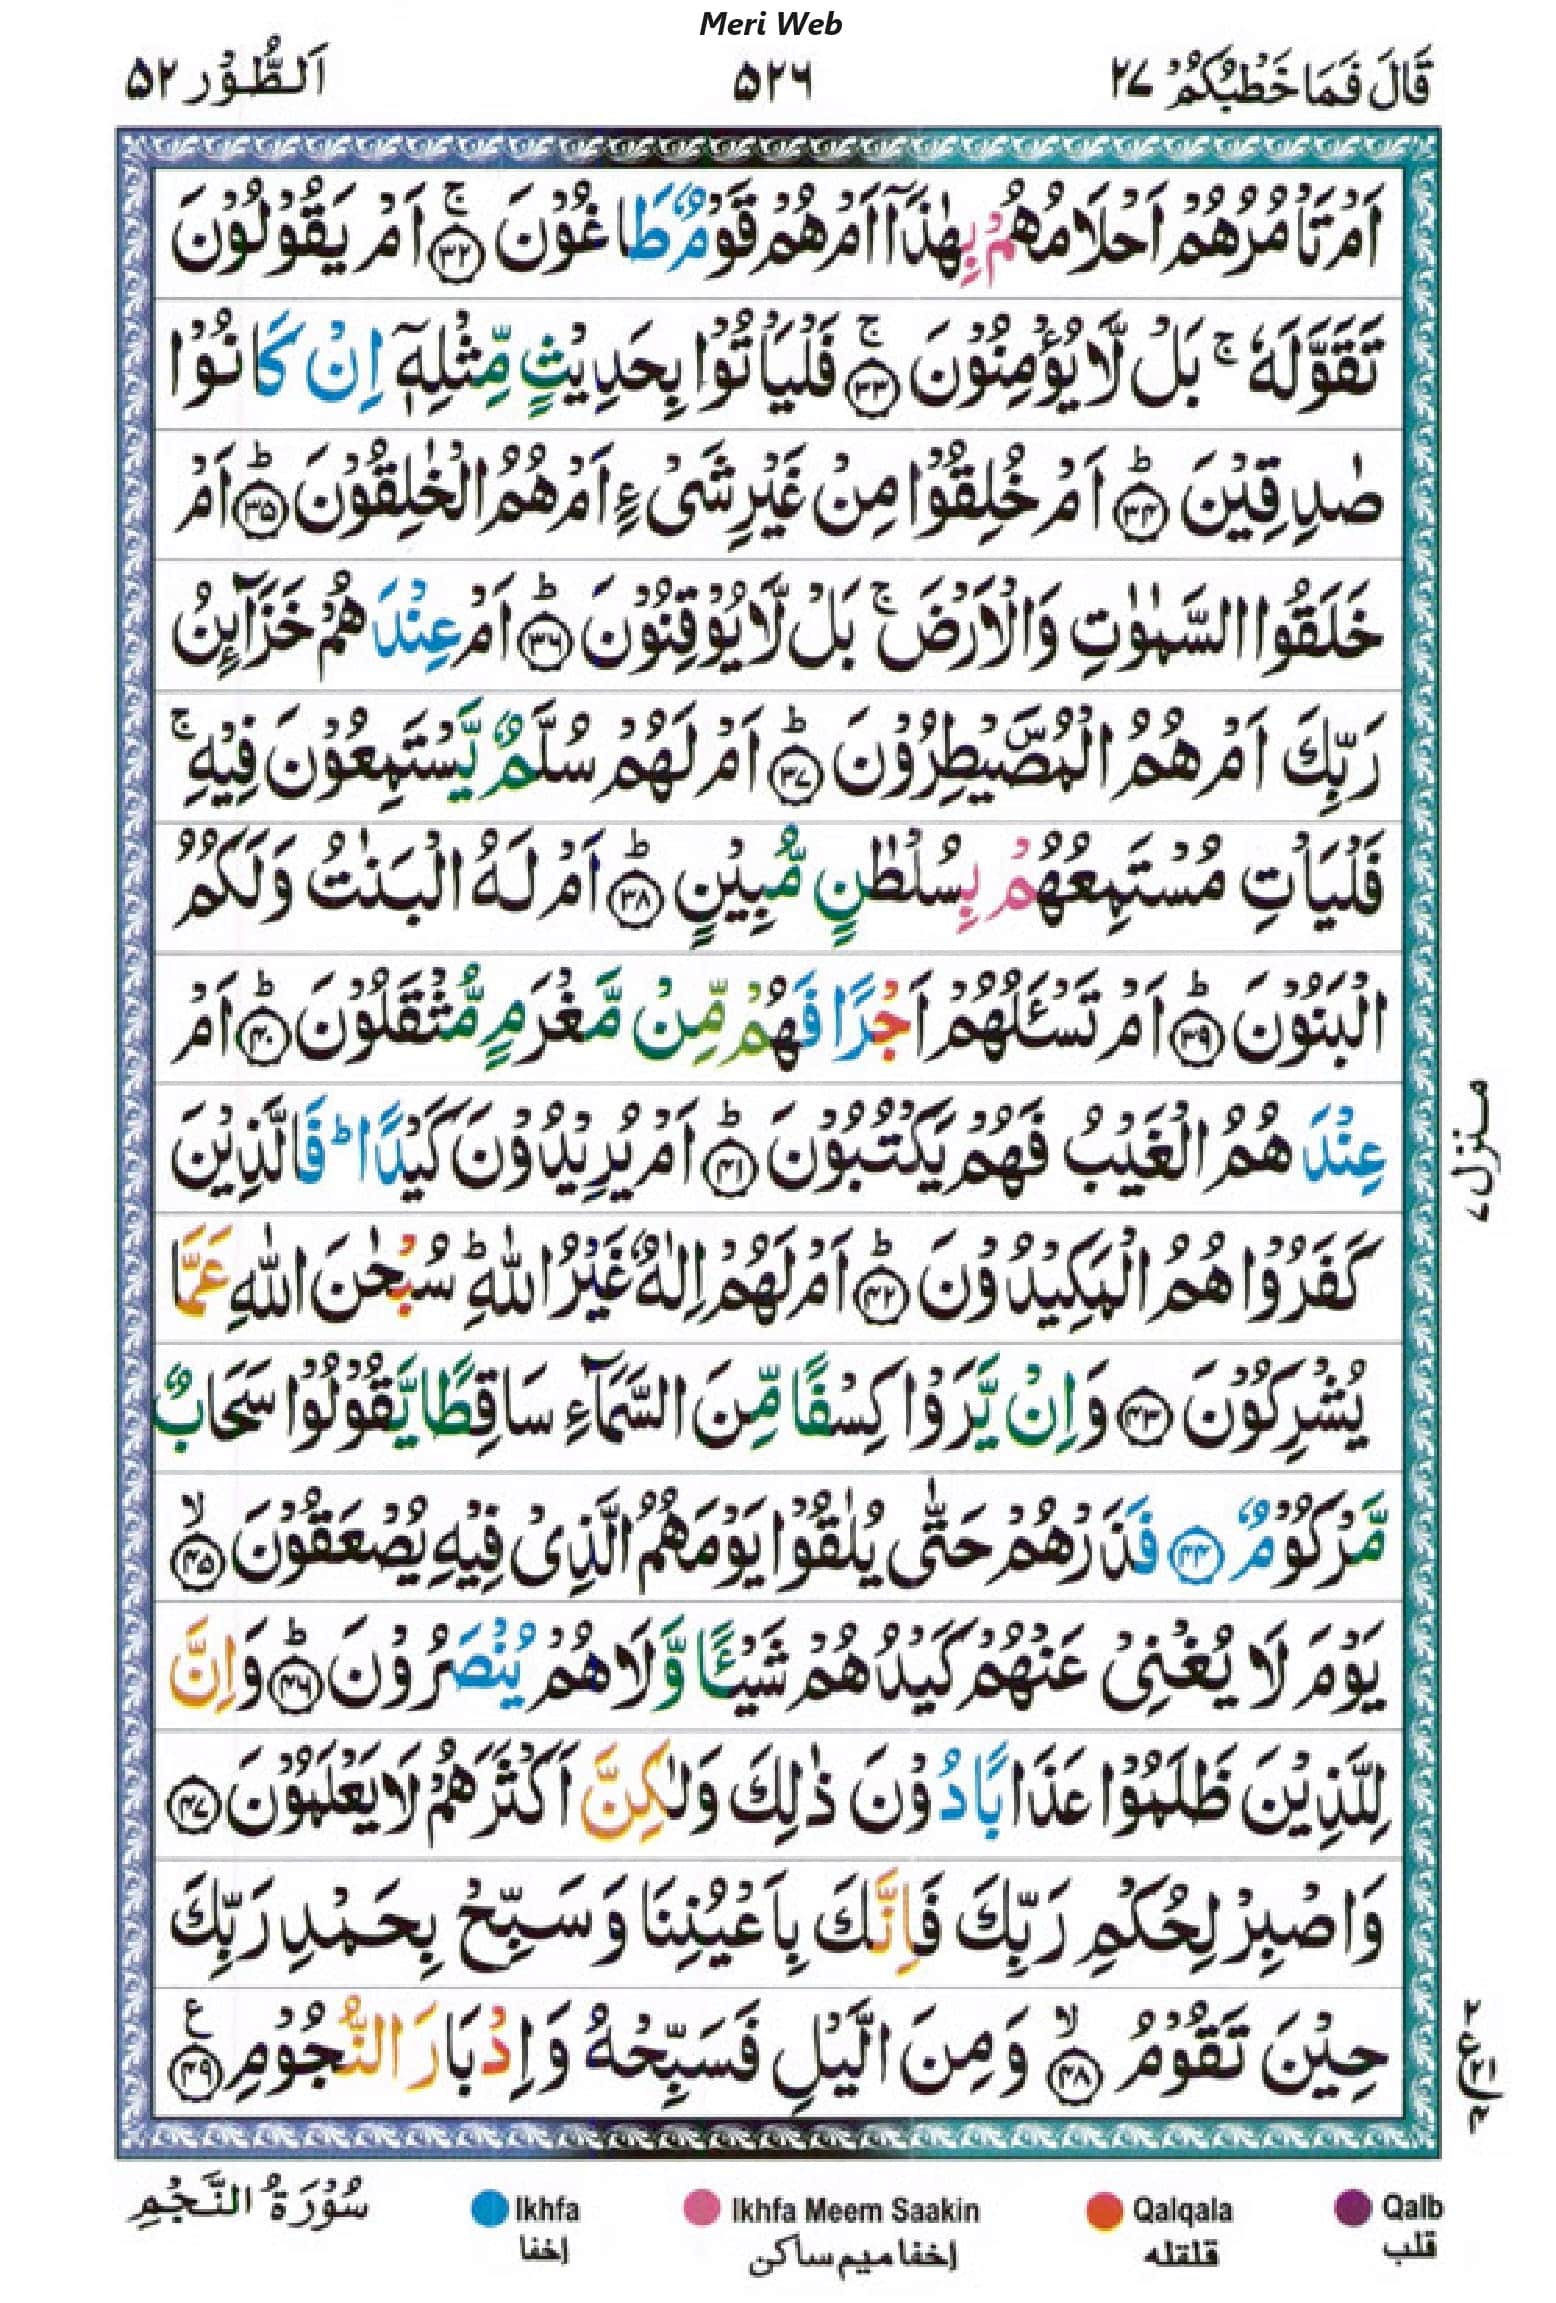 Meri Web
قَالَ فَمَا خَطْبُكُمْ ٢٧
٥٢٦
اَلطُّوْر ٥٢
اَمْ تَاْمُرُهُمْ اَحْلَامُهُمْ بِهٰذَآ اَمْ هُمْ قَوْمٌ طَاغُوْنَ ۚ ٣٢ اَمْ يَقُوْلُوْنَ
تَقَوَّلَهٗ ۚ بَلْ لَّا يُؤْمِنُوْنَ ۚ ٣٣ فَلْيَاْتُوْا بِحَدِيْثٍ مِّثْلِهٖٓ اِنْ كَانُوْا
صٰدِقِيْنَ ؕ ٣٤ اَمْ خُلِقُوْا مِنْ غَيْرِ شَىْءٍ اَمْ هُمُ الْخٰلِقُوْنَ ؕ ٣٥ اَمْ
خَلَقُوا السَّمٰوٰتِ وَالْاَرْضَ ۚ بَلْ لَّا يُوْقِنُوْنَ ؕ ٣٦ اَمْ عِنْدَهُمْ خَزَآئِنُ
رَبِّكَ اَمْ هُمُ الْمُصَۜيْطِرُوْنَ ؕ ٣٧ اَمْ لَهُمْ سُلَّمٌ يَّسْتَمِعُوْنَ فِيْهِ ۚ
فَلْيَاْتِ مُسْتَمِعُهُمْ بِسُلْطٰنٍ مُّبِيْنٍ ؕ ٣٨ اَمْ لَهُ الْبَنٰتُ وَلَكُمُ
الْبَنُوْنَ ؕ ٣٩ اَمْ تَسْـَٔلُهُمْ اَجْرًا فَهُمْ مِّنْ مَّغْرَمٍ مُّثْقَلُوْنَ ؕ ٤٠ اَمْ
عِنْدَهُمُ الْغَيْبُ فَهُمْ يَكْتُبُوْنَ ؕ ٤١ اَمْ يُرِيْدُوْنَ كَيْدًا ؕ فَالَّذِيْنَ
كَفَرُوْا هُمُ الْمَكِيْدُوْنَ ؕ ٤٢ اَمْ لَهُمْ اِلٰهٌ غَيْرُ اللّٰهِ ؕ سُبْحٰنَ اللّٰهِ عَمَّا
يُشْرِكُوْنَ ٤٣ وَاِنْ يَّرَوْا كِسْفًا مِّنَ السَّمَآءِ سَاقِطًا يَّقُوْلُوْا سَحَابٌ
مَّرْكُوْمٌ ٤٤ فَذَرْهُمْ حَتّٰى يُلٰقُوْا يَوْمَهُمُ الَّذِىْ فِيْهِ يُصْعَقُوْنَ ۙ ٤٥
يَوْمَ لَا يُغْنِىْ عَنْهُمْ كَيْدُهُمْ شَيْـًٔا وَّلَا هُمْ يُنْصَرُوْنَ ؕ ٤٦ وَاِنَّ
لِلَّذِيْنَ ظَلَمُوْا عَذَابًا دُوْنَ ذٰلِكَ وَلٰكِنَّ اَكْثَرَهُمْ لَا يَعْلَمُوْنَ ٤٧
وَاصْبِرْ لِحُكْمِ رَبِّكَ فَاِنَّكَ بِاَعْيُنِنَا وَسَبِّحْ بِحَمْدِ رَبِّكَ
حِيْنَ تَقُوْمُ ۙ ٤٨ وَمِنَ الَّيْلِ فَسَبِّحْهُ وَاِدْبَارَ النُّجُوْمِ ٤٩ ع
منزل ٧
٢ ع ٢١ ٤
سُوْرَةُ النَّجْمِ
Ikhfa
اخفا
Ikhfa Meem Saakin
اخفا ميم ساكن
Qalqala
قلقله
Qalb
قلب